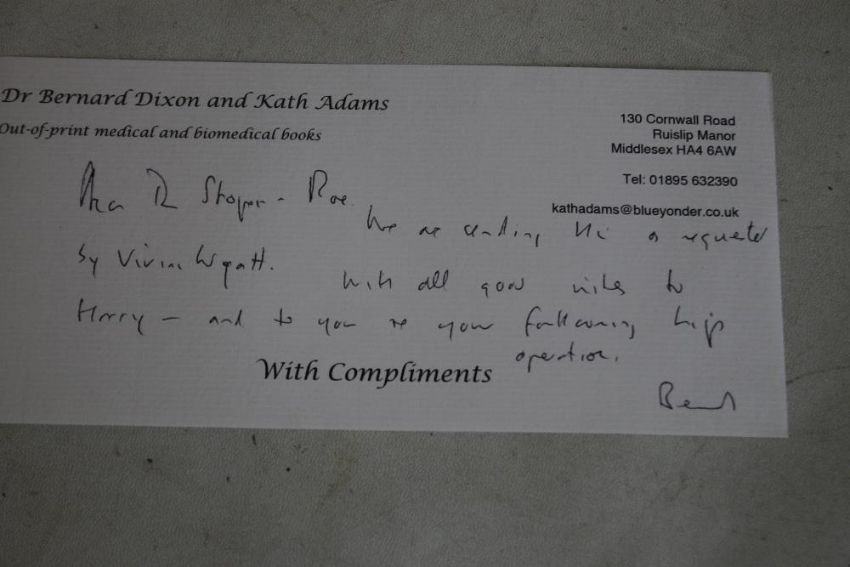 Dr Bernard Dixon and Kath Adams
Out-of-print medical and biomedical books
130 Cornwall Road
Ruislip Manor
Middlesex HA4 6AW
Tel: 01895 632390
kathadams@blueyonder.co.uk
Dr Roe
We are sending this as requested
by Vivian Wyatt. With all good wishes to
Harry – and to you re your hip
operation.
With Compliments
Bernard